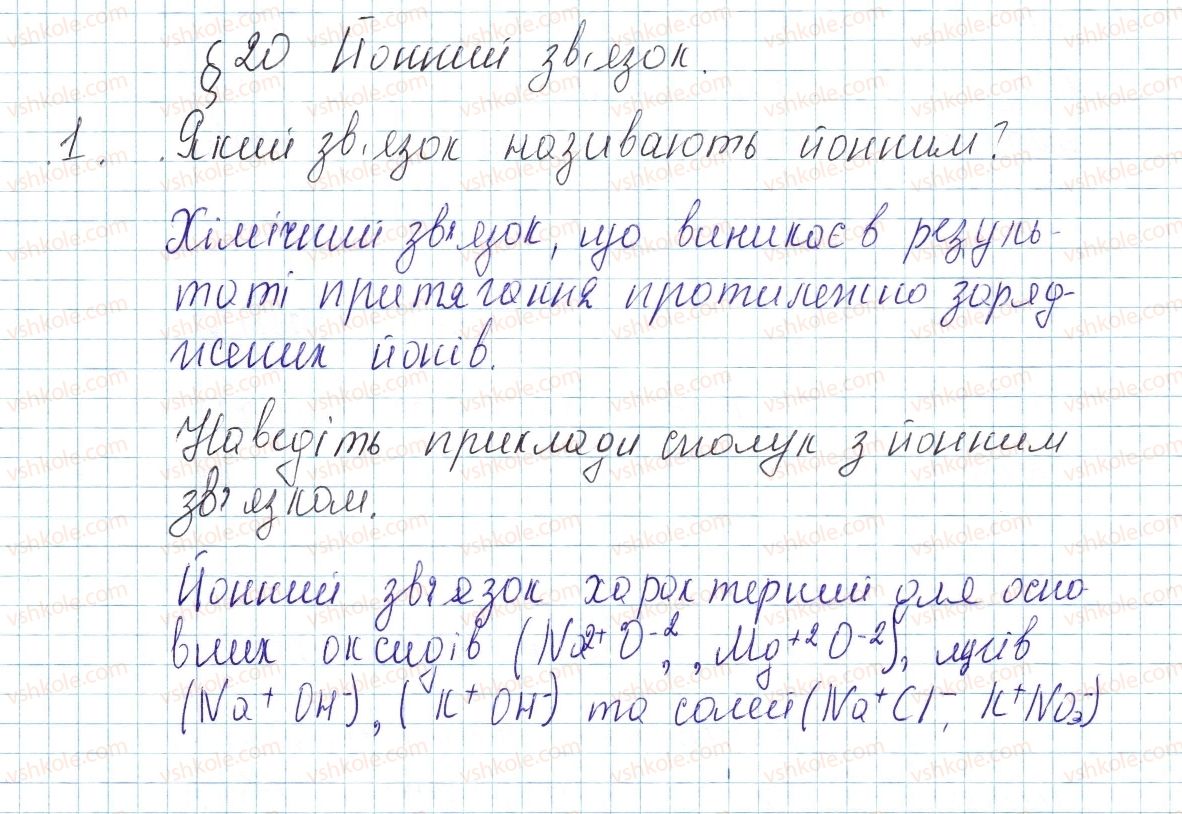 § 20 Йонний зв'язок.
1. Який зв'язок називають йонним?
Хімічний зв'язок, що виникає в резуль-
таті притягання протилежно заряд-
жених йонів.
Наведіть приклади сполук з йонним
зв'язком.
Йонний зв'язок характерний для осно-
вних оксидів (Na2+O-2, Mg+2O-2), лугів
(Na+OH-), (K+OH-) та солей (Na+Cl-, K+NO3-)